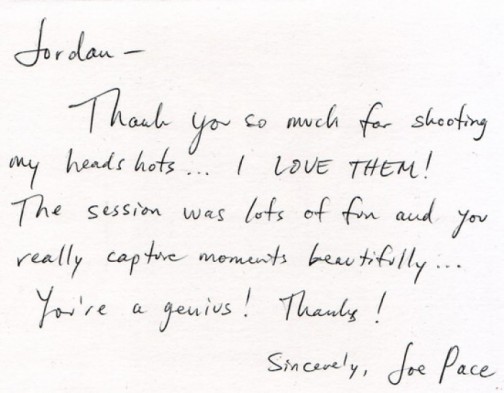 Jordan —
Thank you so much for shooting
my headshots... I LOVE THEM!
The session was lots of fun and you
really capture moments beautifully...
You're a genius! Thanks!
Sincerely, Joe Pace